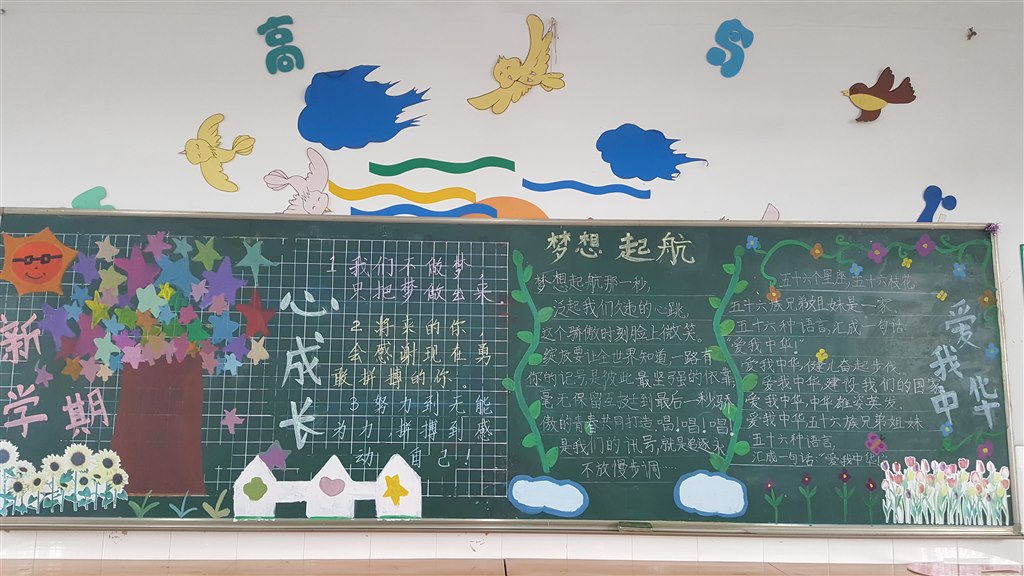 高
新
学期
心
成
长
1 我们不做梦
只把梦做出来
2 将来的你
会感谢现在勇
敢拼搏的你。
3 努力到无能
为力,拼搏到感
动自己!
梦想起航
梦想起航那一秒,
见起我们火速的心跳,
这个骄傲时刻脸上微笑。
绽放要让全世界知道,一路有
你的记号,是彼此最坚强的依靠
毫无保留
到最后一秒
傲的青春共同打造.唱!唱!唱!
是我们的讯号,就是追逐永
不放慢步调…
五十六个星座,五十六枝花
五十六族兄弟姐妹是一家
五十六种语言,汇成一句话
"爱我中华!"
爱我中华,健儿奋起步伐
爱我中华,建设我们的国家
爱我中华,中华雄姿英发
爱我中华五十六族兄弟姐妹
五十六种语言
汇成一句话:"爱我中华
爱
我
中华